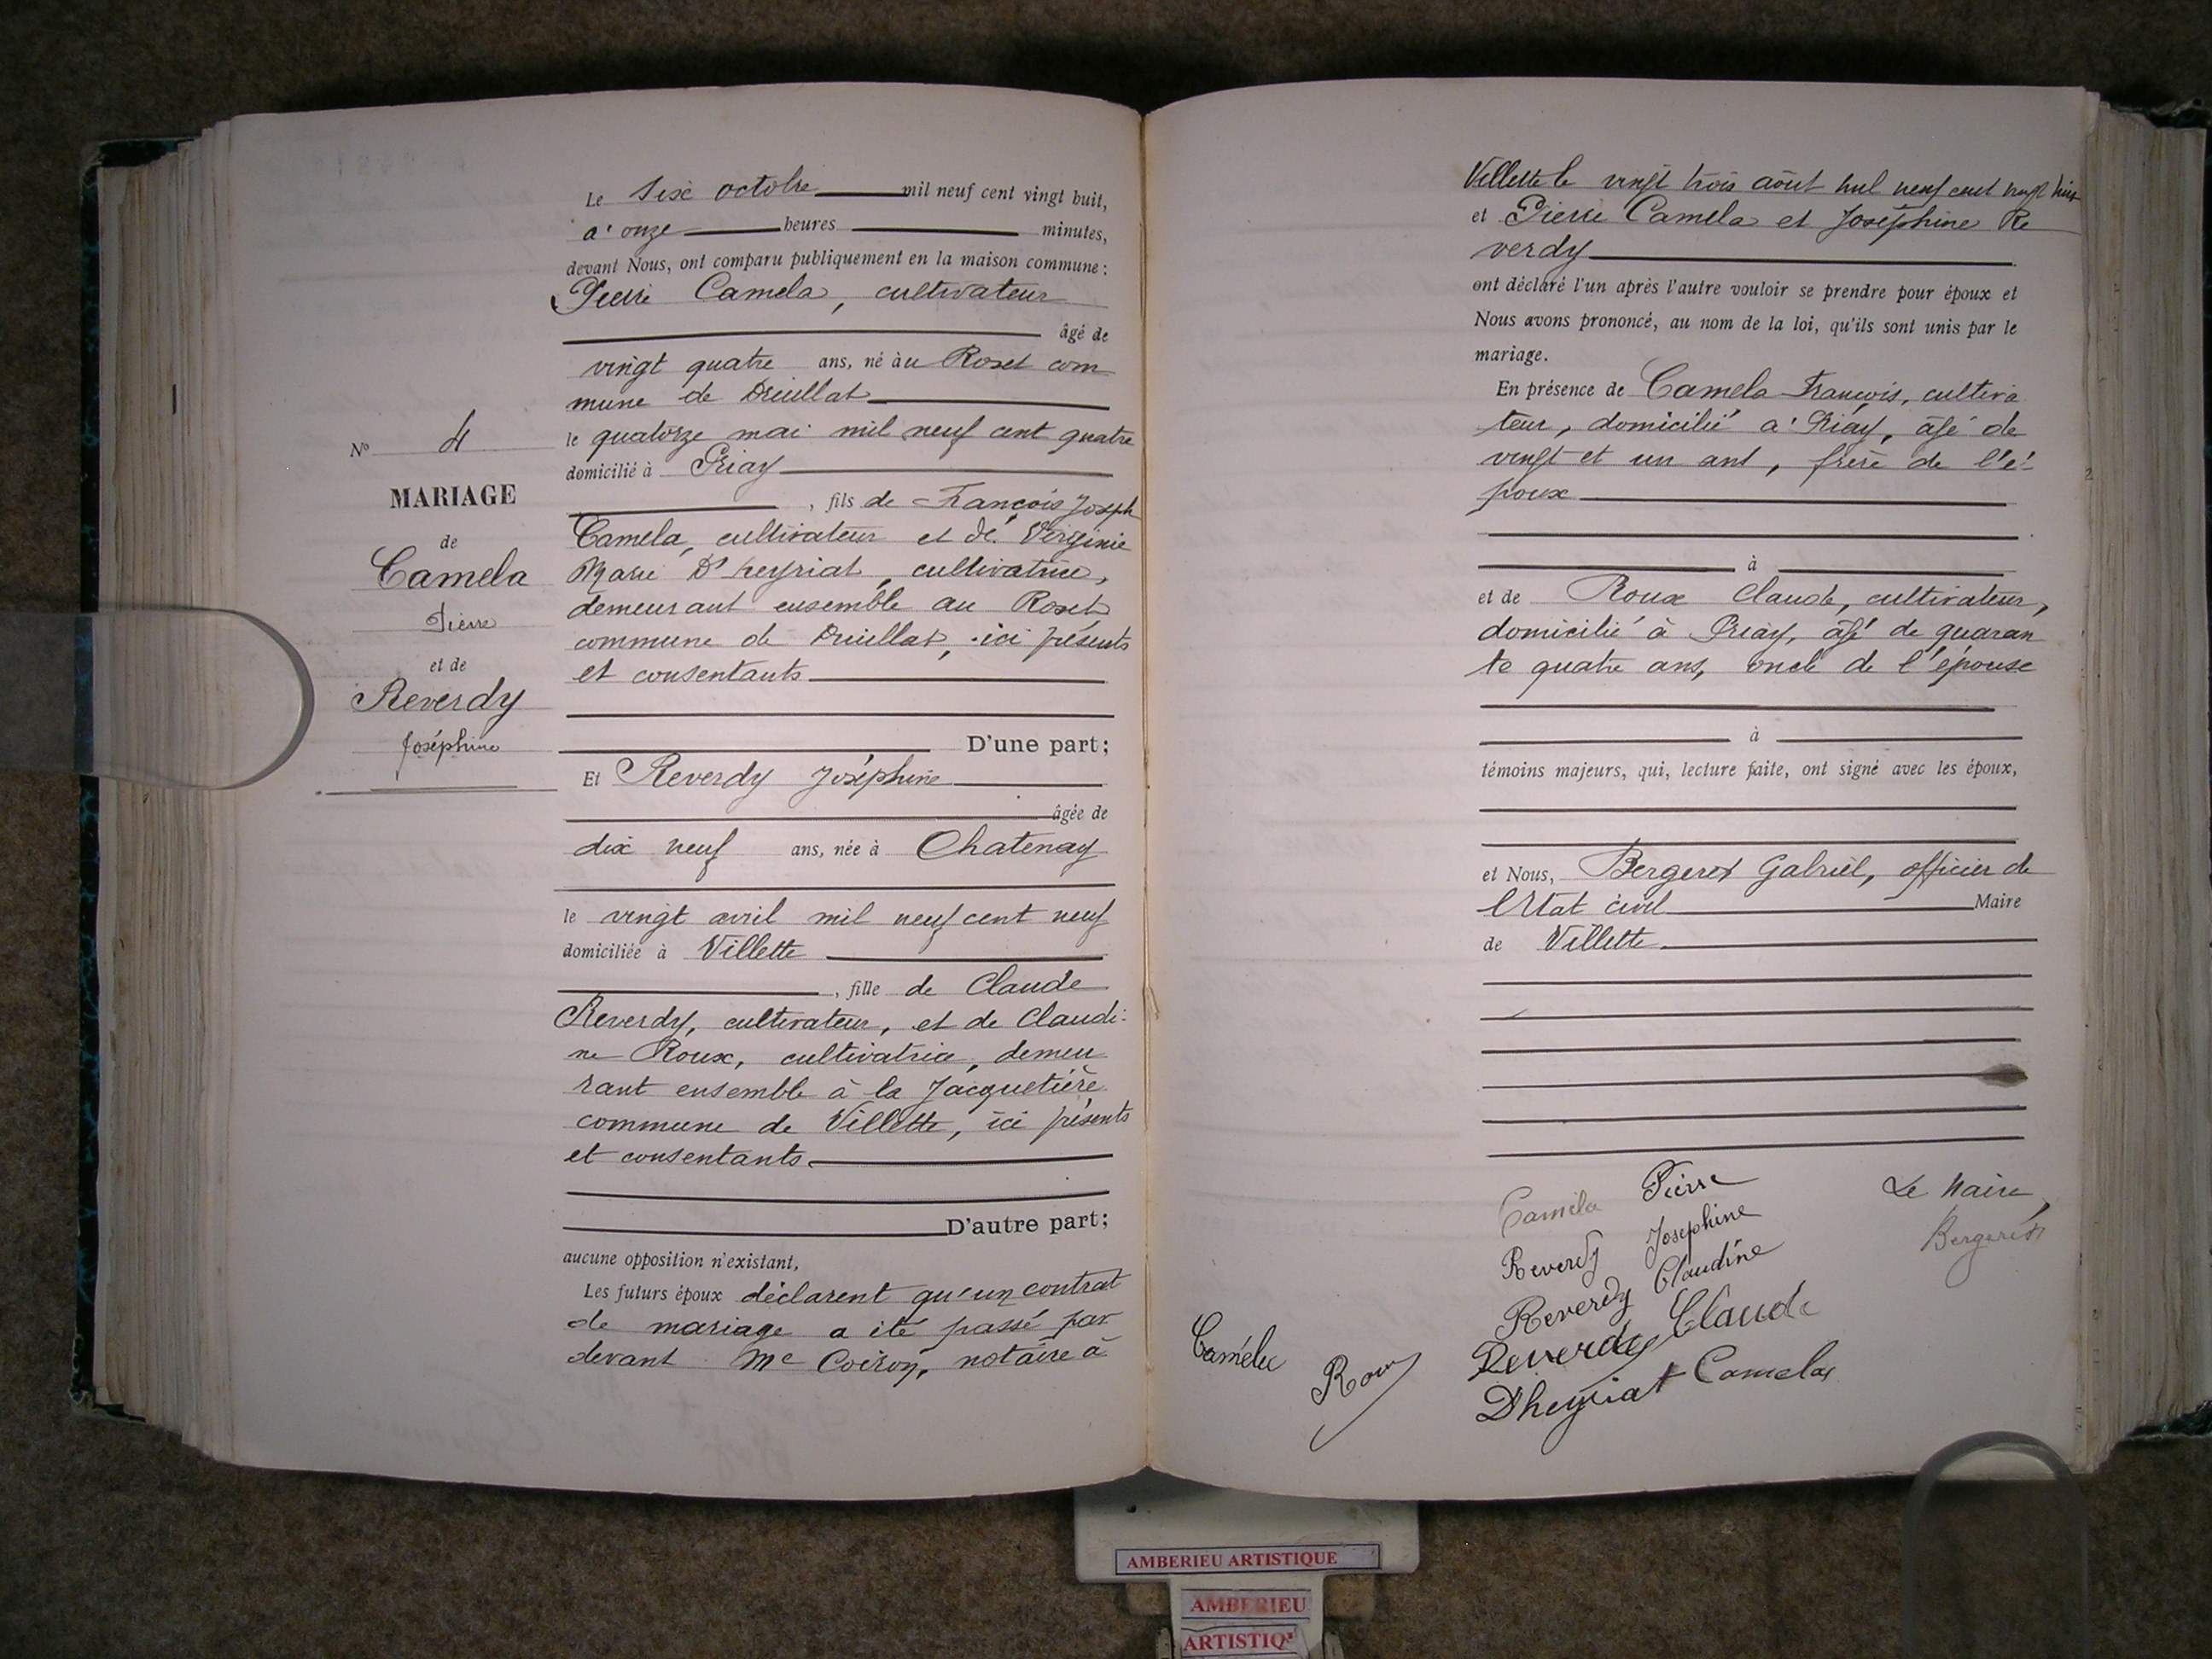 Le Sixè octobre mil neuf cent vingt huit,
a' onze heures minutes,
devant Nous, ont comparu publiquement en la maison commune :
Pierre Camela, cultivateur
âgé de
vingt quatre ans, né àu Roset com
mune de Druillat
le quatorze mai mil neuf cent quatre
domicilié à Priay
, fils de François Joseph
Camela, cultivateur et de Virginie
Marie D'heyriat, cultivatrice,
demeurant ensemble au Roset
commune de Druillat, ici présents
et consentants
D'une part ;
Et Reverdy Joséphine
âgée de
dix neuf ans, née à Chatenay
le vingt avril mil neuf cent neuf
domiciliée à Villette
, fille de Claude
Reverdy, cultivateur, et de Claudi-
ne Roux, cultivatrice, demeu
rant ensemble à la Jacquetière
commune de Villette, ici présents
et consentants
D'autre part ;
aucune opposition n'existant,
Les futurs époux déclarent qu'un contrat
de mariage a été passé par
devant Me Coiron, notaire à
N° 4
MARIAGE
de
Camela
Pierre
et de
Reverdy
Joséphine
Villette le vingt trois août mil neuf cent vingt huit
et Pierre Camela et Joséphine Re
verdy
ont déclaré l'un après l'autre vouloir se prendre pour époux et
Nous avons prononcé, au nom de la loi, qu'ils sont unis par le
mariage.
En présence de Camela François, cultiva
teur, domicilié a' Priay, âgé de
vingt et un ans, frère de l'é-
poux
à
et de Roux Claude, cultivateur,
domicilié à Priay, âgé de quaran
te quatre ans, oncle de l'épouse
à
témoins majeurs, qui, lecture faite, ont signé avec les époux,
et Nous, Bergeret Gabriel, officier de
l'Etat civil Maire
de Villette
Camela Pierre
Le Maire,
Reverdy Josephine
Bergeret
Reverdy Claudine
Reverdy Claude
Camela
Roux
Dheyriat Camela
AMBERIEU ARTISTIQUE
AMBERIEU
ARTISTIQ